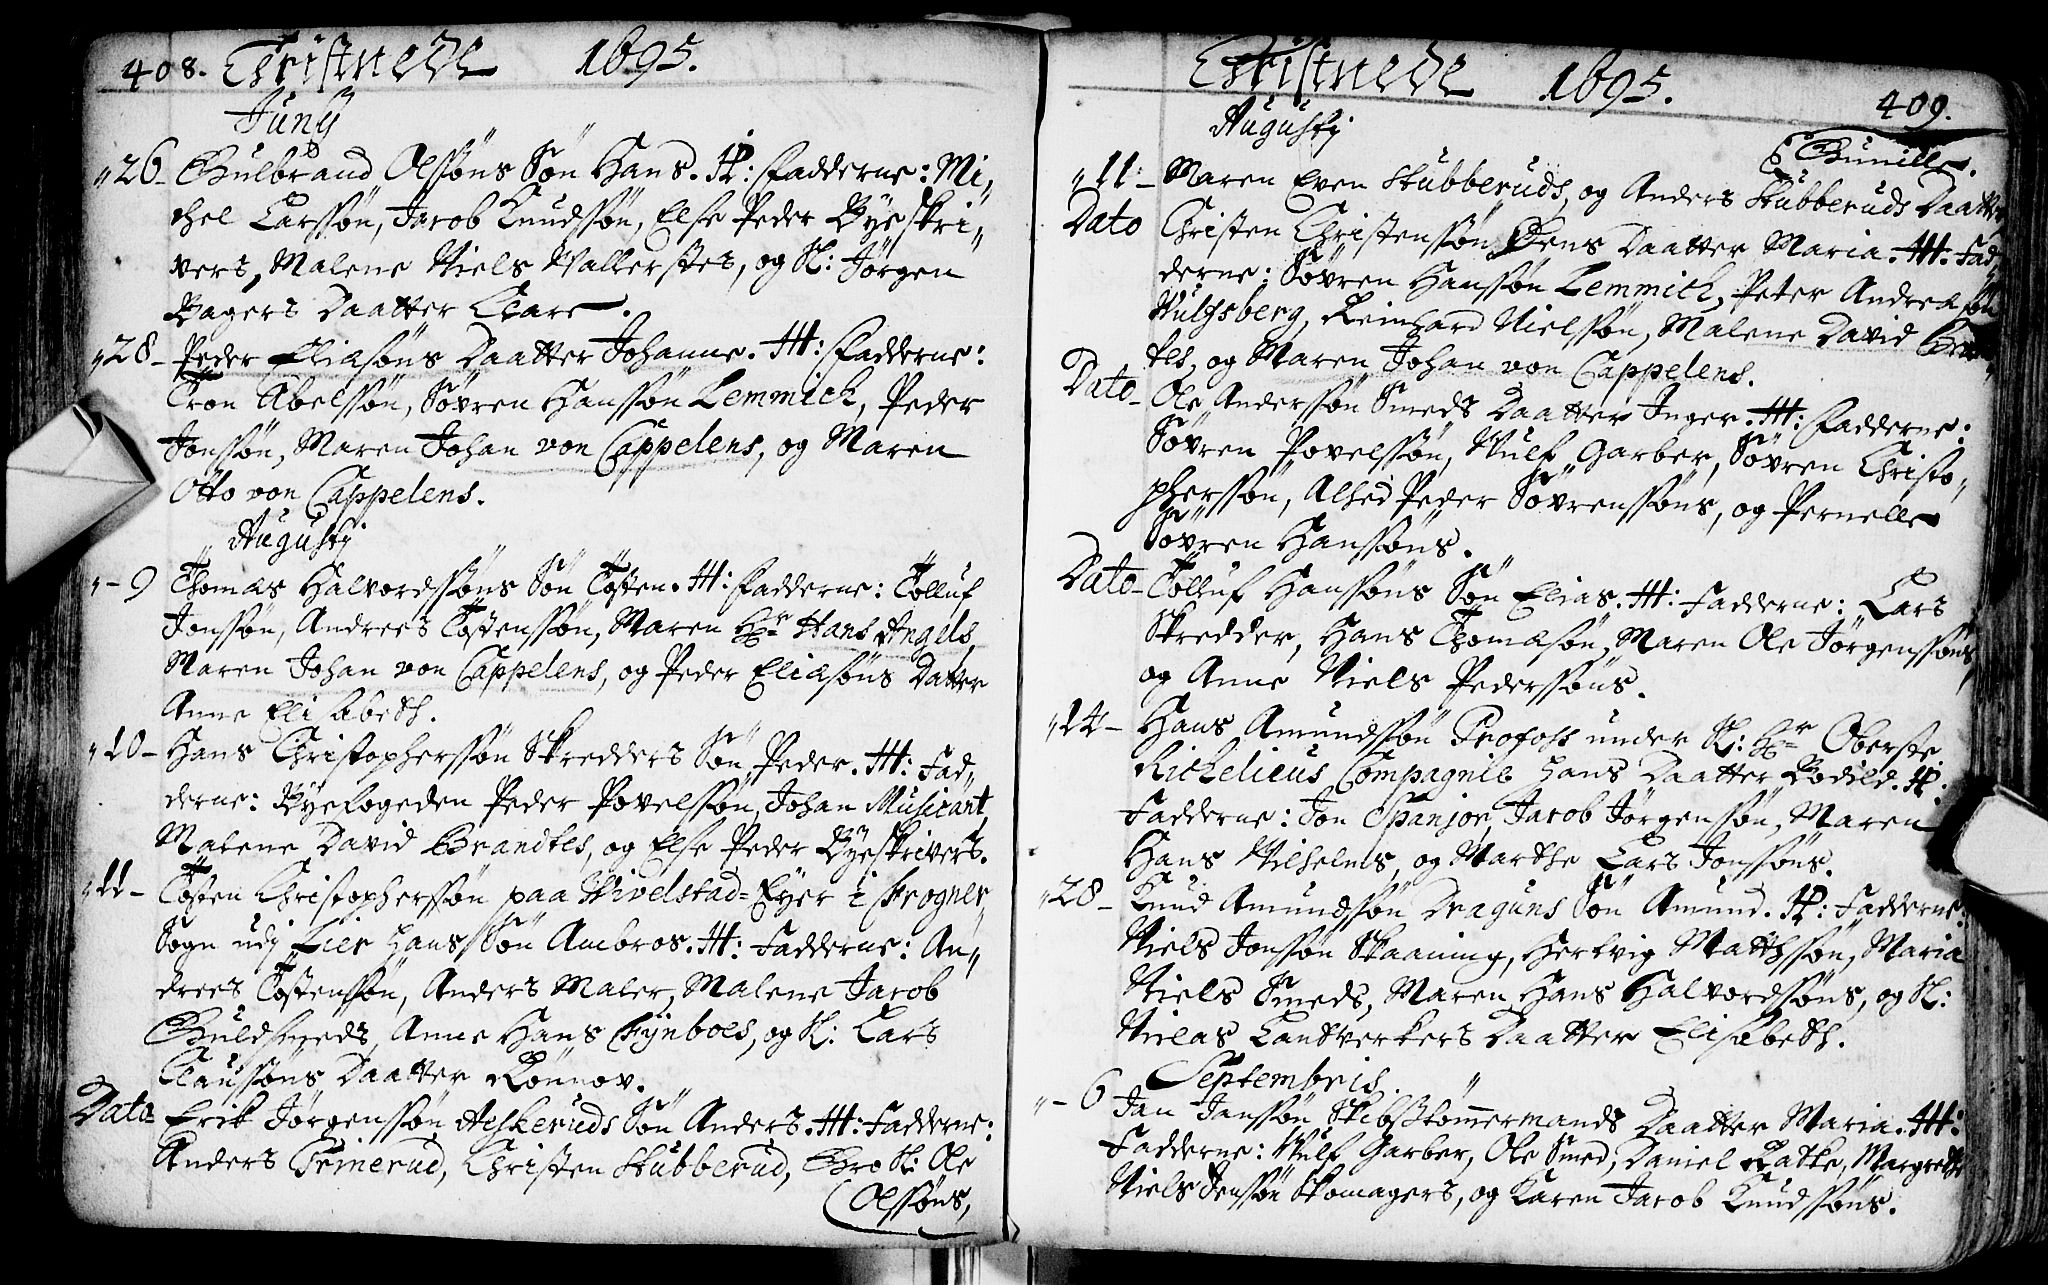 408. Christnede 1695.
Junÿ
"26- Gulbrand Olssøns Søn Hans. H: Fadderne: Mi„
chel Larssøn, Jacob Knudssøn, Else Peder Byeskri„
vers, Malene Niels Wallerstes, og Sl: Jørgen
Bagers Daatter Clare.
"28- Peder Eliæsøns Daatter Johanne. H: Fadderne:
Tron Abelssøn, Søvren Hanssøn Lemmich, Peder
Jonssøn, Maren Johan von Cappelens, og Maren
Otto von Cappelens.
Augustj
"-9 Thomas Halvordssøns Søn Tosten. H: Fadderne: Tolluf
Jonssøn, Andrees Tostenssøn, Maren Hr Hans Angels,
Maren Johan von Cappelens, og Peder Eliæsøns Datter
Anne Elisabeth.
"10- Hans Christopherssøn Skredders Søn Peder. H: Fad„
derne: Byefogeden Peder Povelssøn, Johan Musicant,
Malene David Brandtes, og Else Peder Byeskrivers.
"11- Tosten Christopherssøn paa Wivelstad-Eyer i Frogner
Sogn udj Lier hans Søn Ambros. H: Fadderne: An„
drees Tostenssøn, Anders Maler, Malene Jacob
Guldsmeds, Anne Hans Fynboes, og Sl: Lars
Claussøns Daatter Rønnov.
Dato- Erik Jørgenssøn Aeskeruds Søn Anders. H: Fadderne:
Anders Grinerud, Christen Skubberud, Gro Sl: Ole
Olssøns,
Christnede 1695. 409.
Augustj
Gunille.
"11- Maren Even Skubberuds, og Anders Skubberuds Daatter
Dato Christen Christenssøn Øens Daatter Maria. H: Fad„
derne: Søvren Hanssøn Lemmich, Peter Andreæsøn
Wulfsberg, Reinhard Nielssøn, Malene David Brand„
tes, og Maren Johan von Cappelens.
Dato- Ole Anderssøn Smeds Daatter Inger. H: Fadderne:
Søvren Povelssøn, Wulf Garber, Søvren Christo„
pherssøn, Alhed Peder Søvrenssøns, og Pernelle
Søvren Hanssøns.
Dato- Tolluf Hanssøns Søn Elias. H: Fadderne: Lars
Skredder, Hans Thomæsøn, Maren Ole Jørgenssøns,
og Anne Niels Pederssøns.
"14- Hans Amundssøn Profoss under Sl: Hr Oberste
Richelieus Compagnie hans Daatter Bodild. H:
Fadderne: Jon Spanjor, Jacob Jørgenssøn, Maren
Hans Wilhelms, og Marthe Lars Jonssøns.
"28- Knud Amundssøn Draguns Søn Amund. H: Fadderne:
Niels Jonssøn Skaaning, Hertvig Matthssøn, Maria
Niels Smeds, Maren Hans Halvordssøns, og Sl:
Niclas Kandverkers Daatter Elisabeth.
Septembris.
"-6 Jan Janssøn Skibstømmermands Daatter Maria. H:
Fadderne: Wulf Garber, Ole Smed, Daniel Ratke, Margrethe
Niels Jenssøn Skomagers, og Karen Jacob Knudssøns.